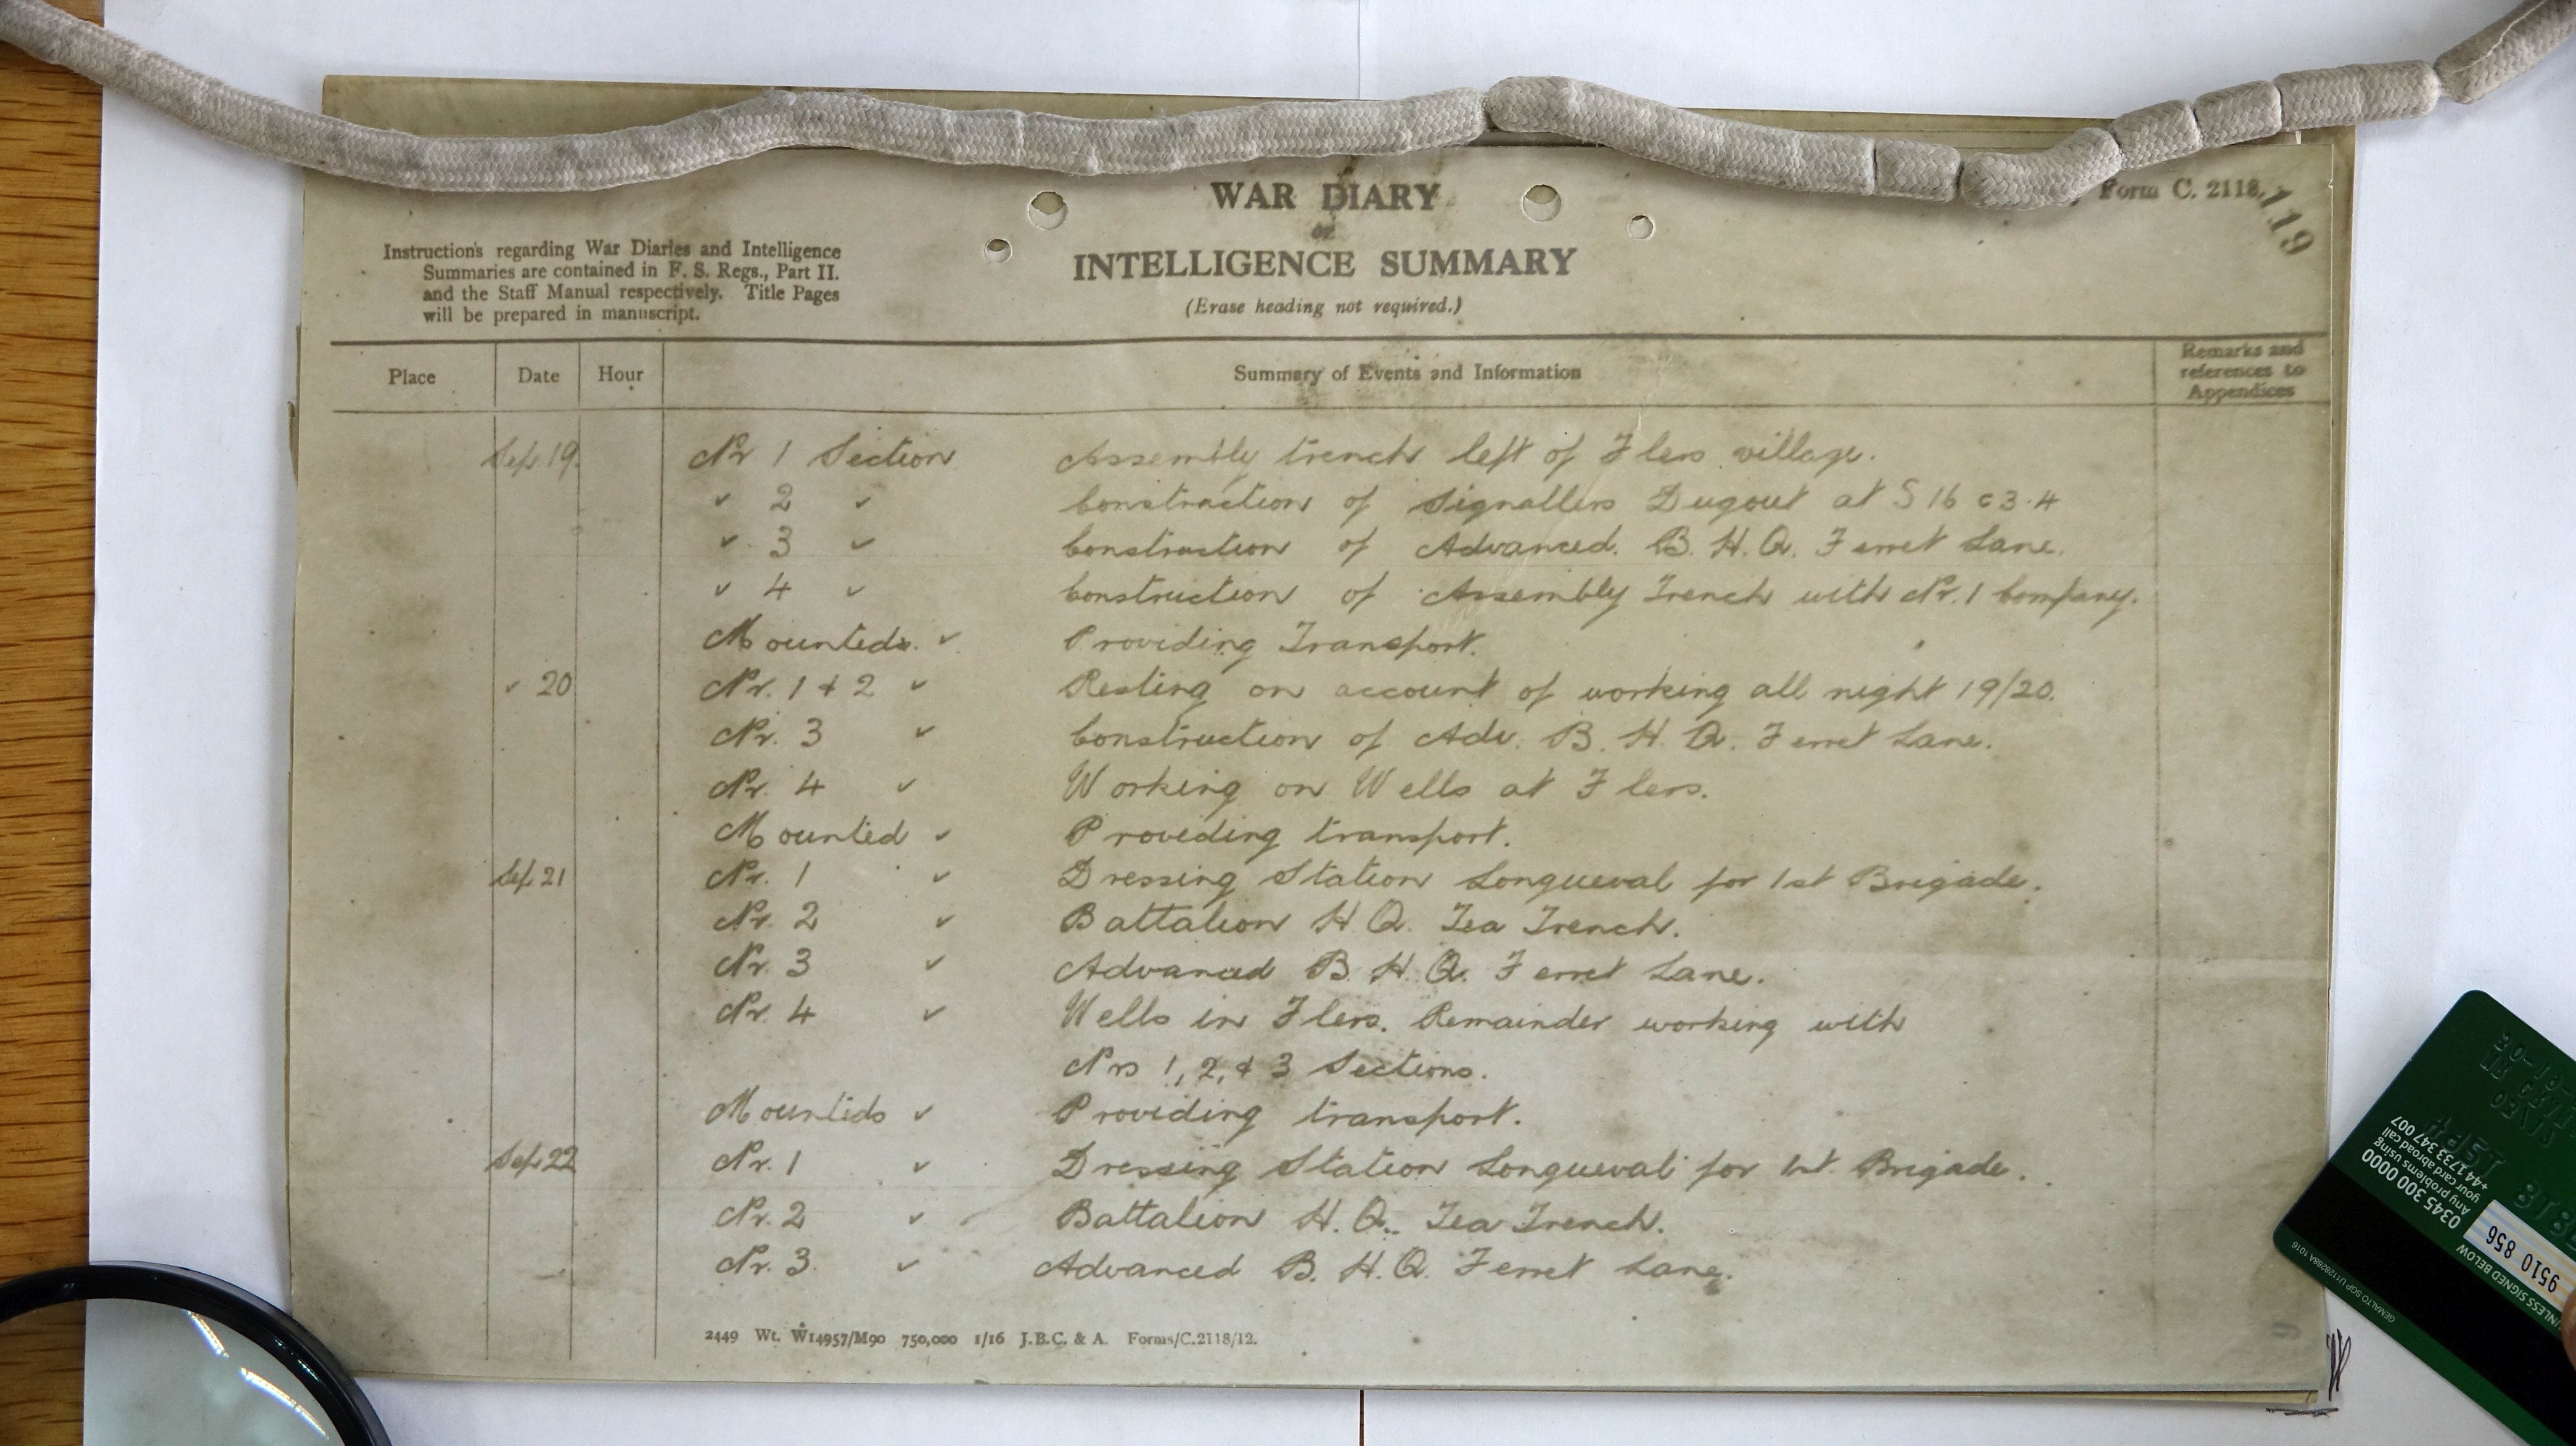 Form C. 2118.
119
WAR DIARY
or
INTELLIGENCE SUMMARY
(Erase heading not required.)
Instructions regarding War Diaries and Intelligence
Summaries are contained in F. S. Regs., Part II.
and the Staff Manual respectively. Title Pages
will be prepared in manuscript.
Place Date Hour Summary of Events and Information Remarks and references to Appendices
Sep 19. Nr 1 Section Assembly trench left of Flers village.
" 2 " Construction of Signallers Dugout at S 16 c 3.4
" 3 " Construction of Advanced. B. H. Q. Ferret Lane.
" 4 " Construction of Assembly Trench with Nr. 1 Company.
Mounteds. " Providing Transport.
" 20 Nr. 1 & 2 " Resting on account of working all night 19/20.
Nr. 3 " Construction of Adv. B. H. Q. Ferret Lane.
Nr. 4 " Working on Wells at Flers.
Mounted " Providing transport.
Sep. 21 Nr. 1 " Dressing Station Longueval for 1st Brigade.
Nr. 2 " Battalion H.Q. Tea Trench.
Nr. 3 " Advanced B. H. Q. Ferret Lane.
Nr. 4 " Wells in Flers. Remainder working with
Nrs 1, 2, & 3 Sections.
Mounteds " Providing transport.
Sep 22 Nr. 1 " Dressing Station Longueval for 1st Brigade.
Nr. 2 " Battalion H.Q. Tea Trench.
Nr. 3. " Advanced B. H. Q. Ferret Lane.
2449 Wt. W14957/M90 750,000 1/16 J.B.C. & A. Forms/C.2118/12.